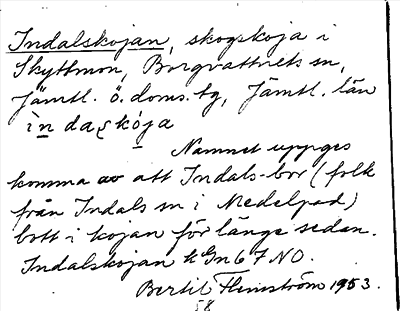 Indalskojan, skogskoja i
Skyttmon, Borgvattnets sn,
Jämtl. ö. doms. tg, Jämtl. län
ìn da ʂkója
Namnet uppges
komma av att Indals-bor (folk
från Indals sn i Medelpad)
bott i kojan för länge sedan.
Indalskojan k Gn 67 NO.
Bertil Flemström 1953.
58